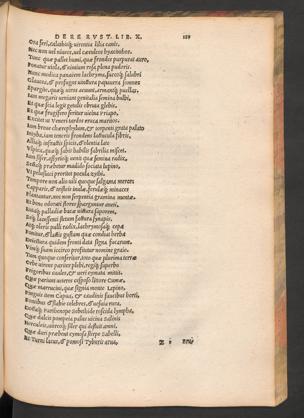 DE RE RVST. LIB. X.
Ora feri, calathisq; virentia lilia canis,
Nec non vel niueos, vel caeruleos hyacinthos.
Tunc quae pallet humi, quae frondes purpurat auro,
Ponatur viola, & nimium rosa plena pudoris.
Nunc medica panacem lachryma, succoq; salubri
Glaucea, & profugos vinctura papauera somnos
Spargite, quaeq; viros acuunt, armantq; puellis,
Iam megaris veniant genitalia semina bulbi,
Et quae sicca legit
Et quae frugifero seritur vicina Priapo,
Excitet vt Veneri tardos eruca maritos.
Iam breue chaerephylum, & torpenti grata palato
Intyba, iam teneris frondens lactucula fibris,
Alliaq; infractis spicis, & olentia late
Vlpica, quaeq; fabis habilis fabrilia miscet.
Iam siser, assyrioq; venit quae semine radix,
Sectaq; praebetur madido sociata lupino,
Vt pelusiaci proritet pocula zythi.
Tempore non alio vili quoque salgama merces
Capparis, & tristes inulae, ferulaeq; minaces
Plantantur, nec non serpentia gramina mentae,
Et bene odorati flores sparguntur anethi,
Rutaq; palladiae baccae vtura saporem,
Seq; lacessenti fletum factura sinapis,
Atq; oleris pulli radix, lachrymosaq; cepa
Ponitur, & lactis gustum quae condiat herba
Deletura quidem fronti data signa fugarum,
Vimq; suam iccirco profitetur nomine graio.
Tum quoque conseritur, toto quae plurima terrae
Orbe virens pariter plebi, regiq; superbo
Frigoribus caules, & veri cymata mittit.
Quae pariunt veteres cesposo litore Cumae,
Quae marrucini, quae signia monte Lepino,
Pinguis item Capua, & caudinis faucibus horti,
Fontibus & stabie celebres, & vesuia rura,
Doctaq; Parthenope Sebethide roscida lympha,
Quae dulcis pompeia palus vicina salinis
Herculeis, vitreoq; siler qui defluit amni.
Quae duri praebent cymosa stirpe Sabelli,
Et Turni lacus, & pomosi Tyburis arua,